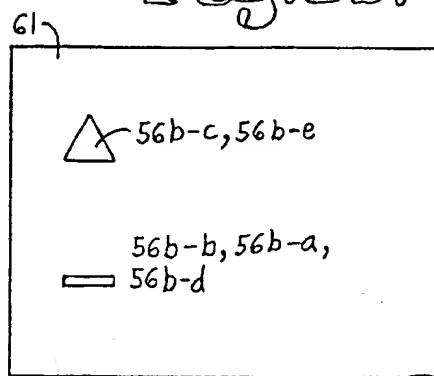 61
56b-c, 56b-e
56b-b, 56b-a,
56b-d